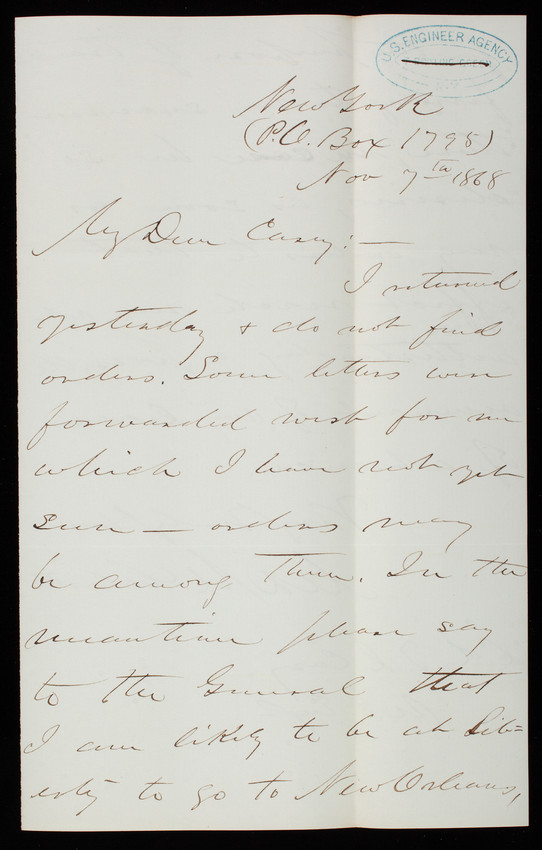 U.S. ENGINEER AGENCY
New York
(P.O. Box 1795)
Nov 7th 1868
My Dear Casey:—
I returned
yesterday & do not find
orders. Some letters were
forwarded west for me
which I have not yet
seen — orders may
be among them. In the
meantime please say
to the General that
I am likely to be at Lib=
erty to go to New Orleans,